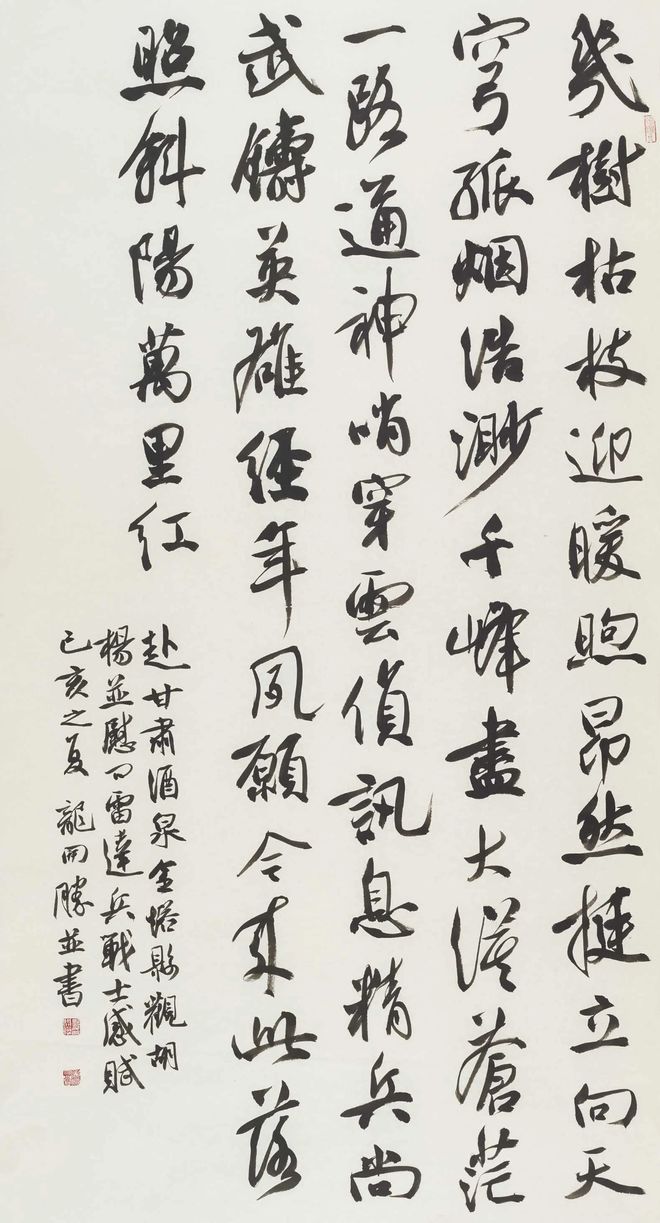 幾樹枯枝迎暖煦昂然挺立向天
穹孤烟浩渺千峰盡大漠蒼茫
一路通神哨穿雲偵訊息精兵尚
武鑄英雄經年夙願今來此落
照斜陽萬里紅
赴甘肅酒泉金塔縣觀胡
楊並慰问雷達兵戰士感賦
己亥之夏 龍開勝並書